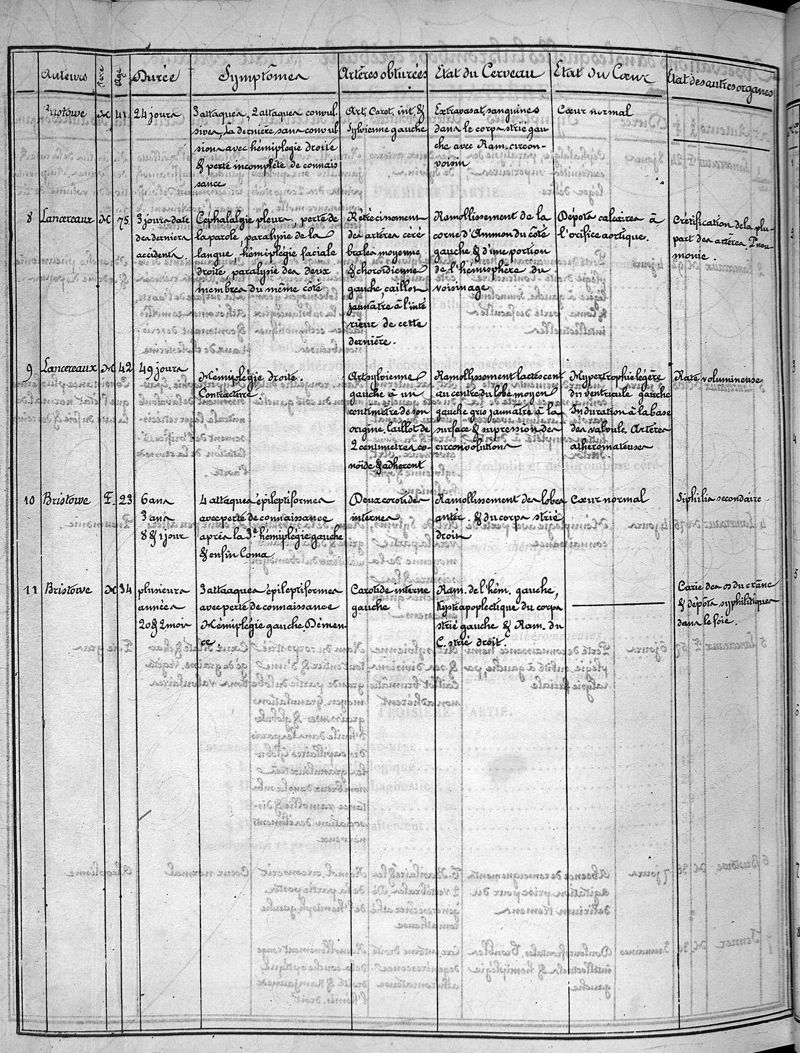 Auteurs Sexe Age Durée Symptômes Artères obturées Etat du Cerveau Etat du Cœur Etat des autres organes
Bristowe M 41 24 jours
3 attaques, 2 attaques convul
sives, la dernière sans convul
sion avec hémiplégie droite
& perte incomplète de connais
sance
Art. Carot. int. &
Sylvienne gauche
Extravasat. sanguines
dans le corps strié gau
che avec Ram. circon-
voisin
Cœur normal
8 Lancereaux M 75
3 jours date
des derniers
accidents.
Céphalalgie pleurs, perte de
la parole, paralysie de la
langue hémiplégie faciale
droite paralysie des deux
membres du même côté
Rétrécissement
des artères céré
brales moyenne
& choroïdienne
gauche, caillot
jaunâtre à l'inté
rieur de cette
dernière.
Ramollissement de la
corne d'Ammon du côté
gauche & d'une portion
de l'hémisphère du
voisinage
Dépots calcaires à
l'orifice aortique.
Crétification de la plu-
part des artères Pneu-
monie.
9 Lancereaux M 42 49 jours
Hémiplégie droite.
Contracture.
Art sylvienne
gauche à un
centimètre de son
origine, Caillot de
2 centimètres co-
noïde & adhérent
Ramollissement lactescent
au centre du lobe moyen
gauche gris jaunâtre à la
surface & supression des
circonvolutions
Hypertrophie légère
du ventricule gauche
Induration à la base
des valvule. Artères
athéromateuses
Rate volumineuse
10 Bristowe F. 23
6 ans
3 ans
8 & 1 jour
4 attaques épileptiformes
avec perte de connaissance
après la 3e hémiplégie gauche
& enfin Coma.
Deux carotides
internes
Ramollissement des lobes
antér. & du corps strié
droit
Cœur normal
Siphilis secondaire
11 Bristowe M 34
plusieurs
années
20 & 2 mois
3 attaques épileptiformes
avec perte de connaissance
Hémiplégie gauche Démen-
ce.
Carotide interne
gauche
Ram. de l'hém. gauche,
Kyste apoplectique du corps
strié gauche & Ram. du
C. strié droit.
Carie des os du crâne
& dépôts syphilitiques
dans le foie.